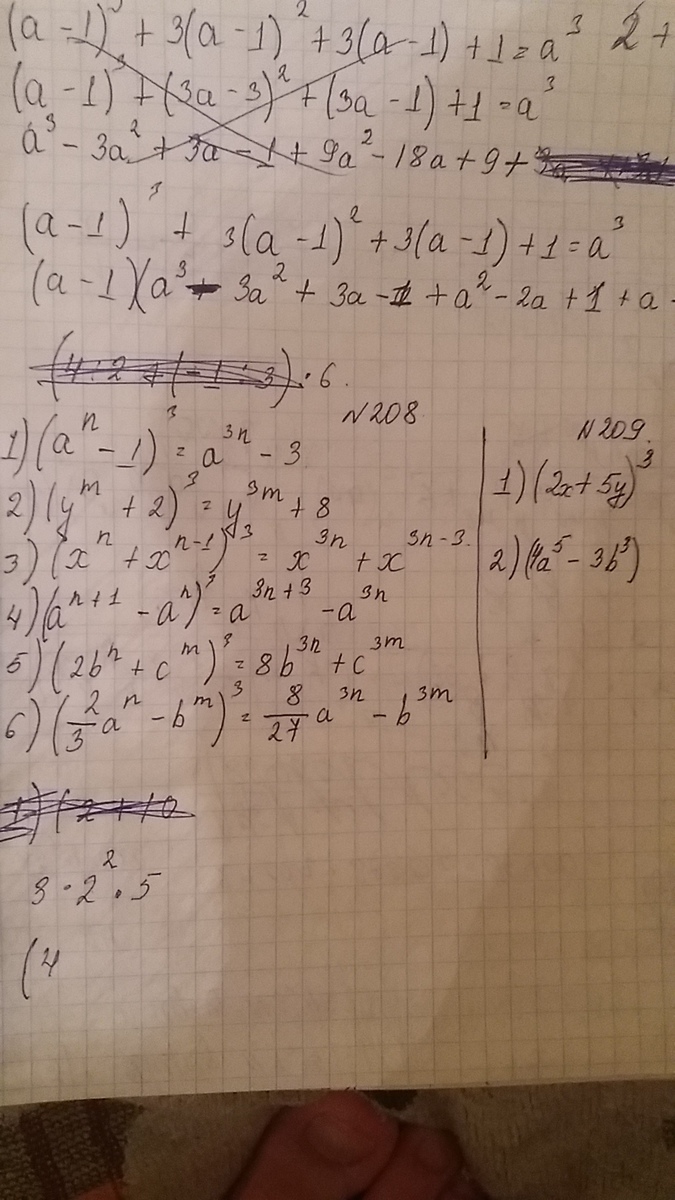 (a - 1)³ + 3(a - 1)² + 3(a - 1) + 1 = a³ 2 +
(a - 1)³ + (3a - 3)² + (3a - 1) + 1 = a³
a³ - 3a² + 3a - 1 + 9a² - 18a + 9 +
(a - 1)³ + 3(a - 1)² + 3(a - 1) + 1 = a³
(a - 1)(a³ - 3a² + 3a - 1 + a² - 2a + 1 + a -
(4 · 2 + (- 1 · 3) · 6.
N208
1) (aⁿ - 1)³ = a³ⁿ - 3
2) (yᵐ + 2)³ = y³ᵐ + 8
3) (xⁿ + xⁿ⁻¹)³ = x³ⁿ + x³ⁿ⁻³
4) (aⁿ⁺¹ - aⁿ)³ = a³ⁿ⁺³ - a³ⁿ
5) (2bⁿ + cᵐ)³ = 8b³ⁿ + c³ᵐ
6) (2/3 aⁿ - bᵐ)³ = 8/27 a³ⁿ - b³ᵐ
N209.
1) (2x + 5y)³
2) (4a⁵ - 3b³)
1) (2 + 10
3 · 2² · 5
(4